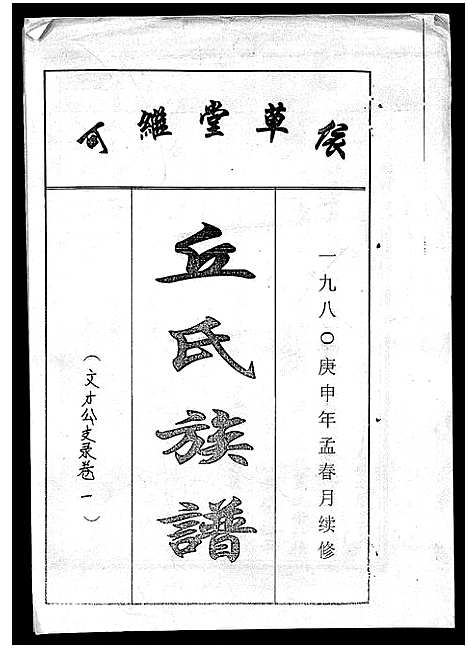 草堂維
一九八〇庚申年孟春月续修
丘氏族譜
（文才公支录卷一）